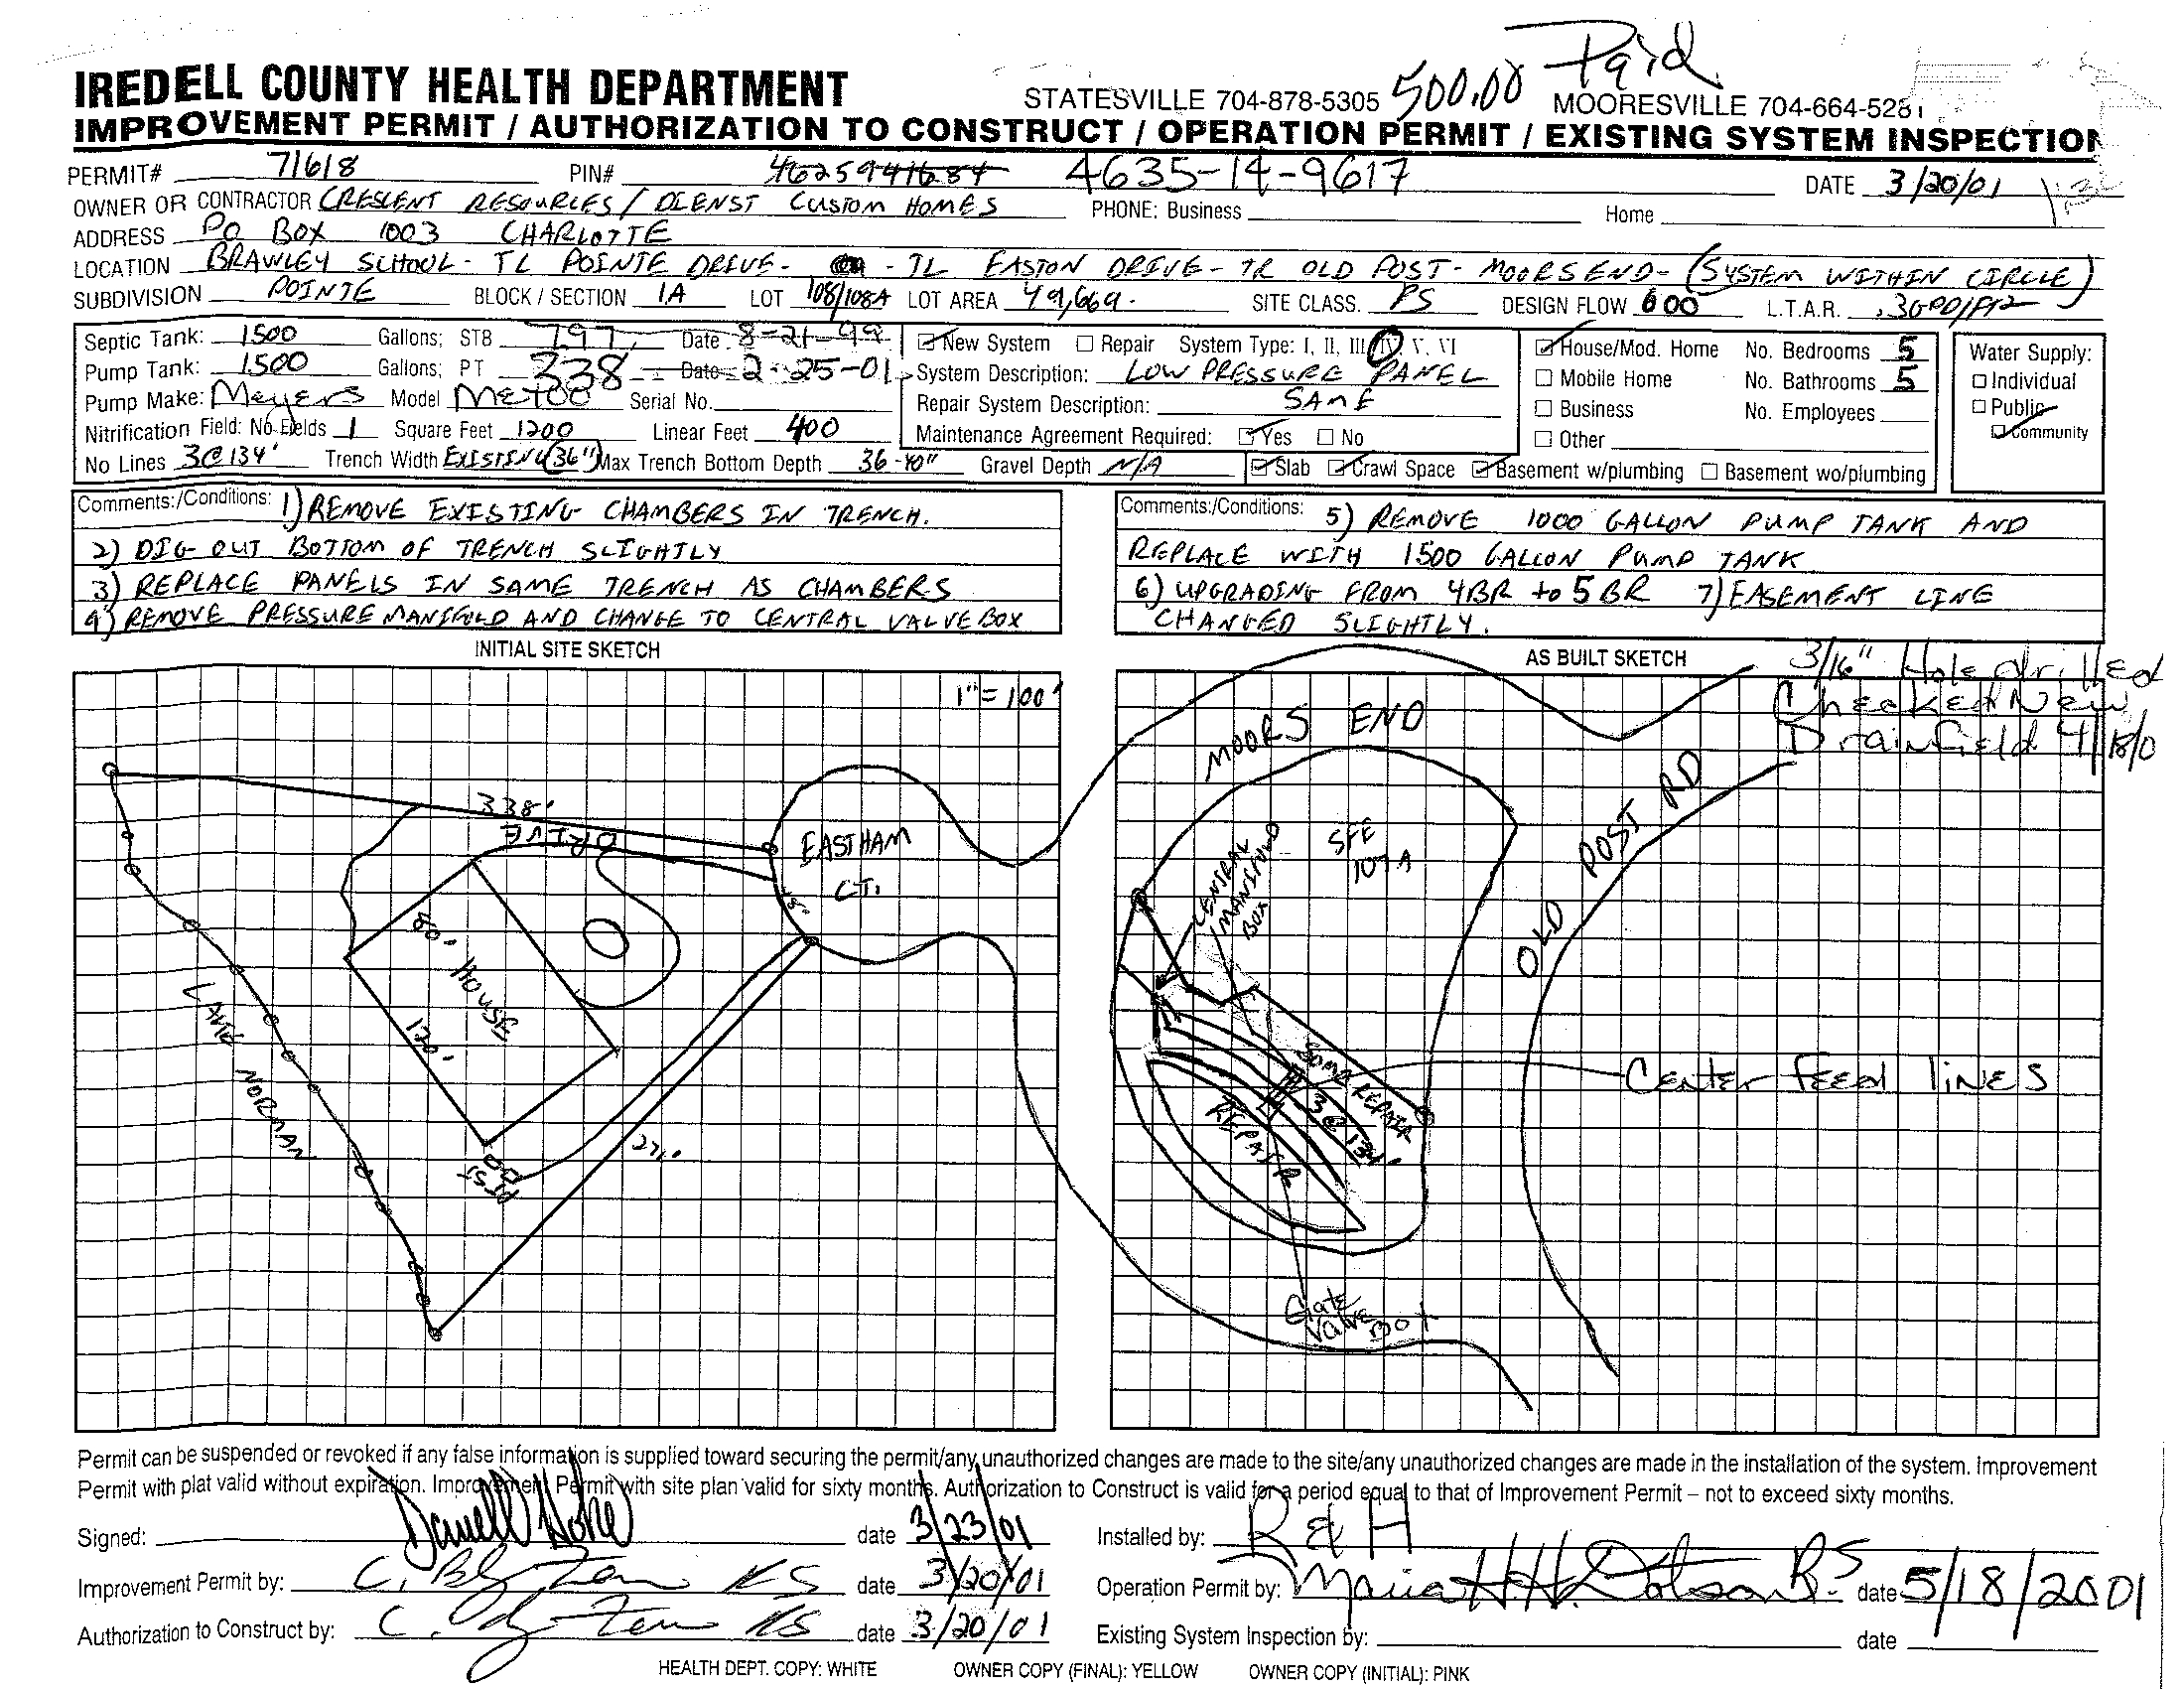 Paid
IREDELL COUNTY HEALTH DEPARTMENT
STATESVILLE 704-878-5305 500.00 MOORESVILLE 704-664-5281
IMPROVEMENT PERMIT / AUTHORIZATION TO CONSTRUCT / OPERATION PERMIT / EXISTING SYSTEM INSPECTION
PERMIT# 71618 PIN# 4625941684 4635-14-9617 DATE 3/20/01
OWNER OR CONTRACTOR CRESCENT RESOURCES / DIENST CUSTOM HOMES PHONE: Business Home
ADDRESS PO BOX 1003 CHARLOTTE
LOCATION BRAWLEY SCHOOL - TL POINTE DRIVE - - TL EASTON DRIVE - TR OLD POST - MOORS END - (SYSTEM WITHIN CIRCLE)
SUBDIVISION POINTE BLOCK / SECTION 1A LOT 108/108A LOT AREA 49,669. SITE CLASS. PS DESIGN FLOW 600 L.T.A.R. .3GPD/FT2
Septic Tank: 1500 Gallons; STB 797 Date 8-21-99 New System Repair System Type: I, II, III, IV, V, VI House/Mod. Home No. Bedrooms 5 Water Supply:
Pump Tank: 1500 Gallons; PT 338 Date 2-25-01 System Description: LOW PRESSURE PANEL Mobile Home No. Bathrooms 5 Individual
Pump Make: Meyers Model ME400 Serial No. Repair System Description: SAME Business No. Employees Public
Nitrification Field: No Fields 1 Square Feet 1200 Linear Feet 400 Maintenance Agreement Required: Yes No Other Community
No Lines 3@134' Trench Width EXISTING (36") Max Trench Bottom Depth 36-40" Gravel Depth N/A Slab Crawl Space Basement w/plumbing Basement wo/plumbing
Comments:/Conditions: 1) REMOVE EXISTING CHAMBERS IN TRENCH.
2) DIG OUT BOTTOM OF TRENCH SLIGHTLY
3) REPLACE PANELS IN SAME TRENCH AS CHAMBERS
4) REMOVE PRESSURE MANIFOLD AND CHANGE TO CENTRAL VALVE BOX
Comments:/Conditions: 5) REMOVE 1000 GALLON PUMP TANK AND
REPLACE WITH 1500 GALLON PUMP TANK
6) UPGRADING FROM 4BR to 5BR 7) EASEMENT LINE
CHANGED SLIGHTLY.
INITIAL SITE SKETCH
1" = 100'
338'
DRIVE
EASTHAM
CT.
80'
HOUSE
120'
LAKE NORMAN
271'
PT ST
AS BUILT SKETCH
3/16" Hole drilled
Checked New
Drainfield 4/18/0
MOORS END
SFE
107A
CENTRAL
MANIFOLD
BOX
OLD POST RD
SOME REPAIR
3@134'
REPAIR
Center Feed lines
Gate
Valve Box
Permit can be suspended or revoked if any false information is supplied toward securing the permit/any unauthorized changes are made to the site/any unauthorized changes are made in the installation of the system. Improvement
Permit with plat valid without expiration. Improvement Permit with site plan valid for sixty months. Authorization to Construct is valid for a period equal to that of Improvement Permit – not to exceed sixty months.
Signed: date 3/23/01 Installed by: R & H
Improvement Permit by: date 3/20/01 Operation Permit by: Maria H. H. Dotson R.S. date 5/18/2001
Authorization to Construct by: date 3/20/01 Existing System Inspection by: date
HEALTH DEPT. COPY: WHITE OWNER COPY (FINAL): YELLOW OWNER COPY (INITIAL): PINK